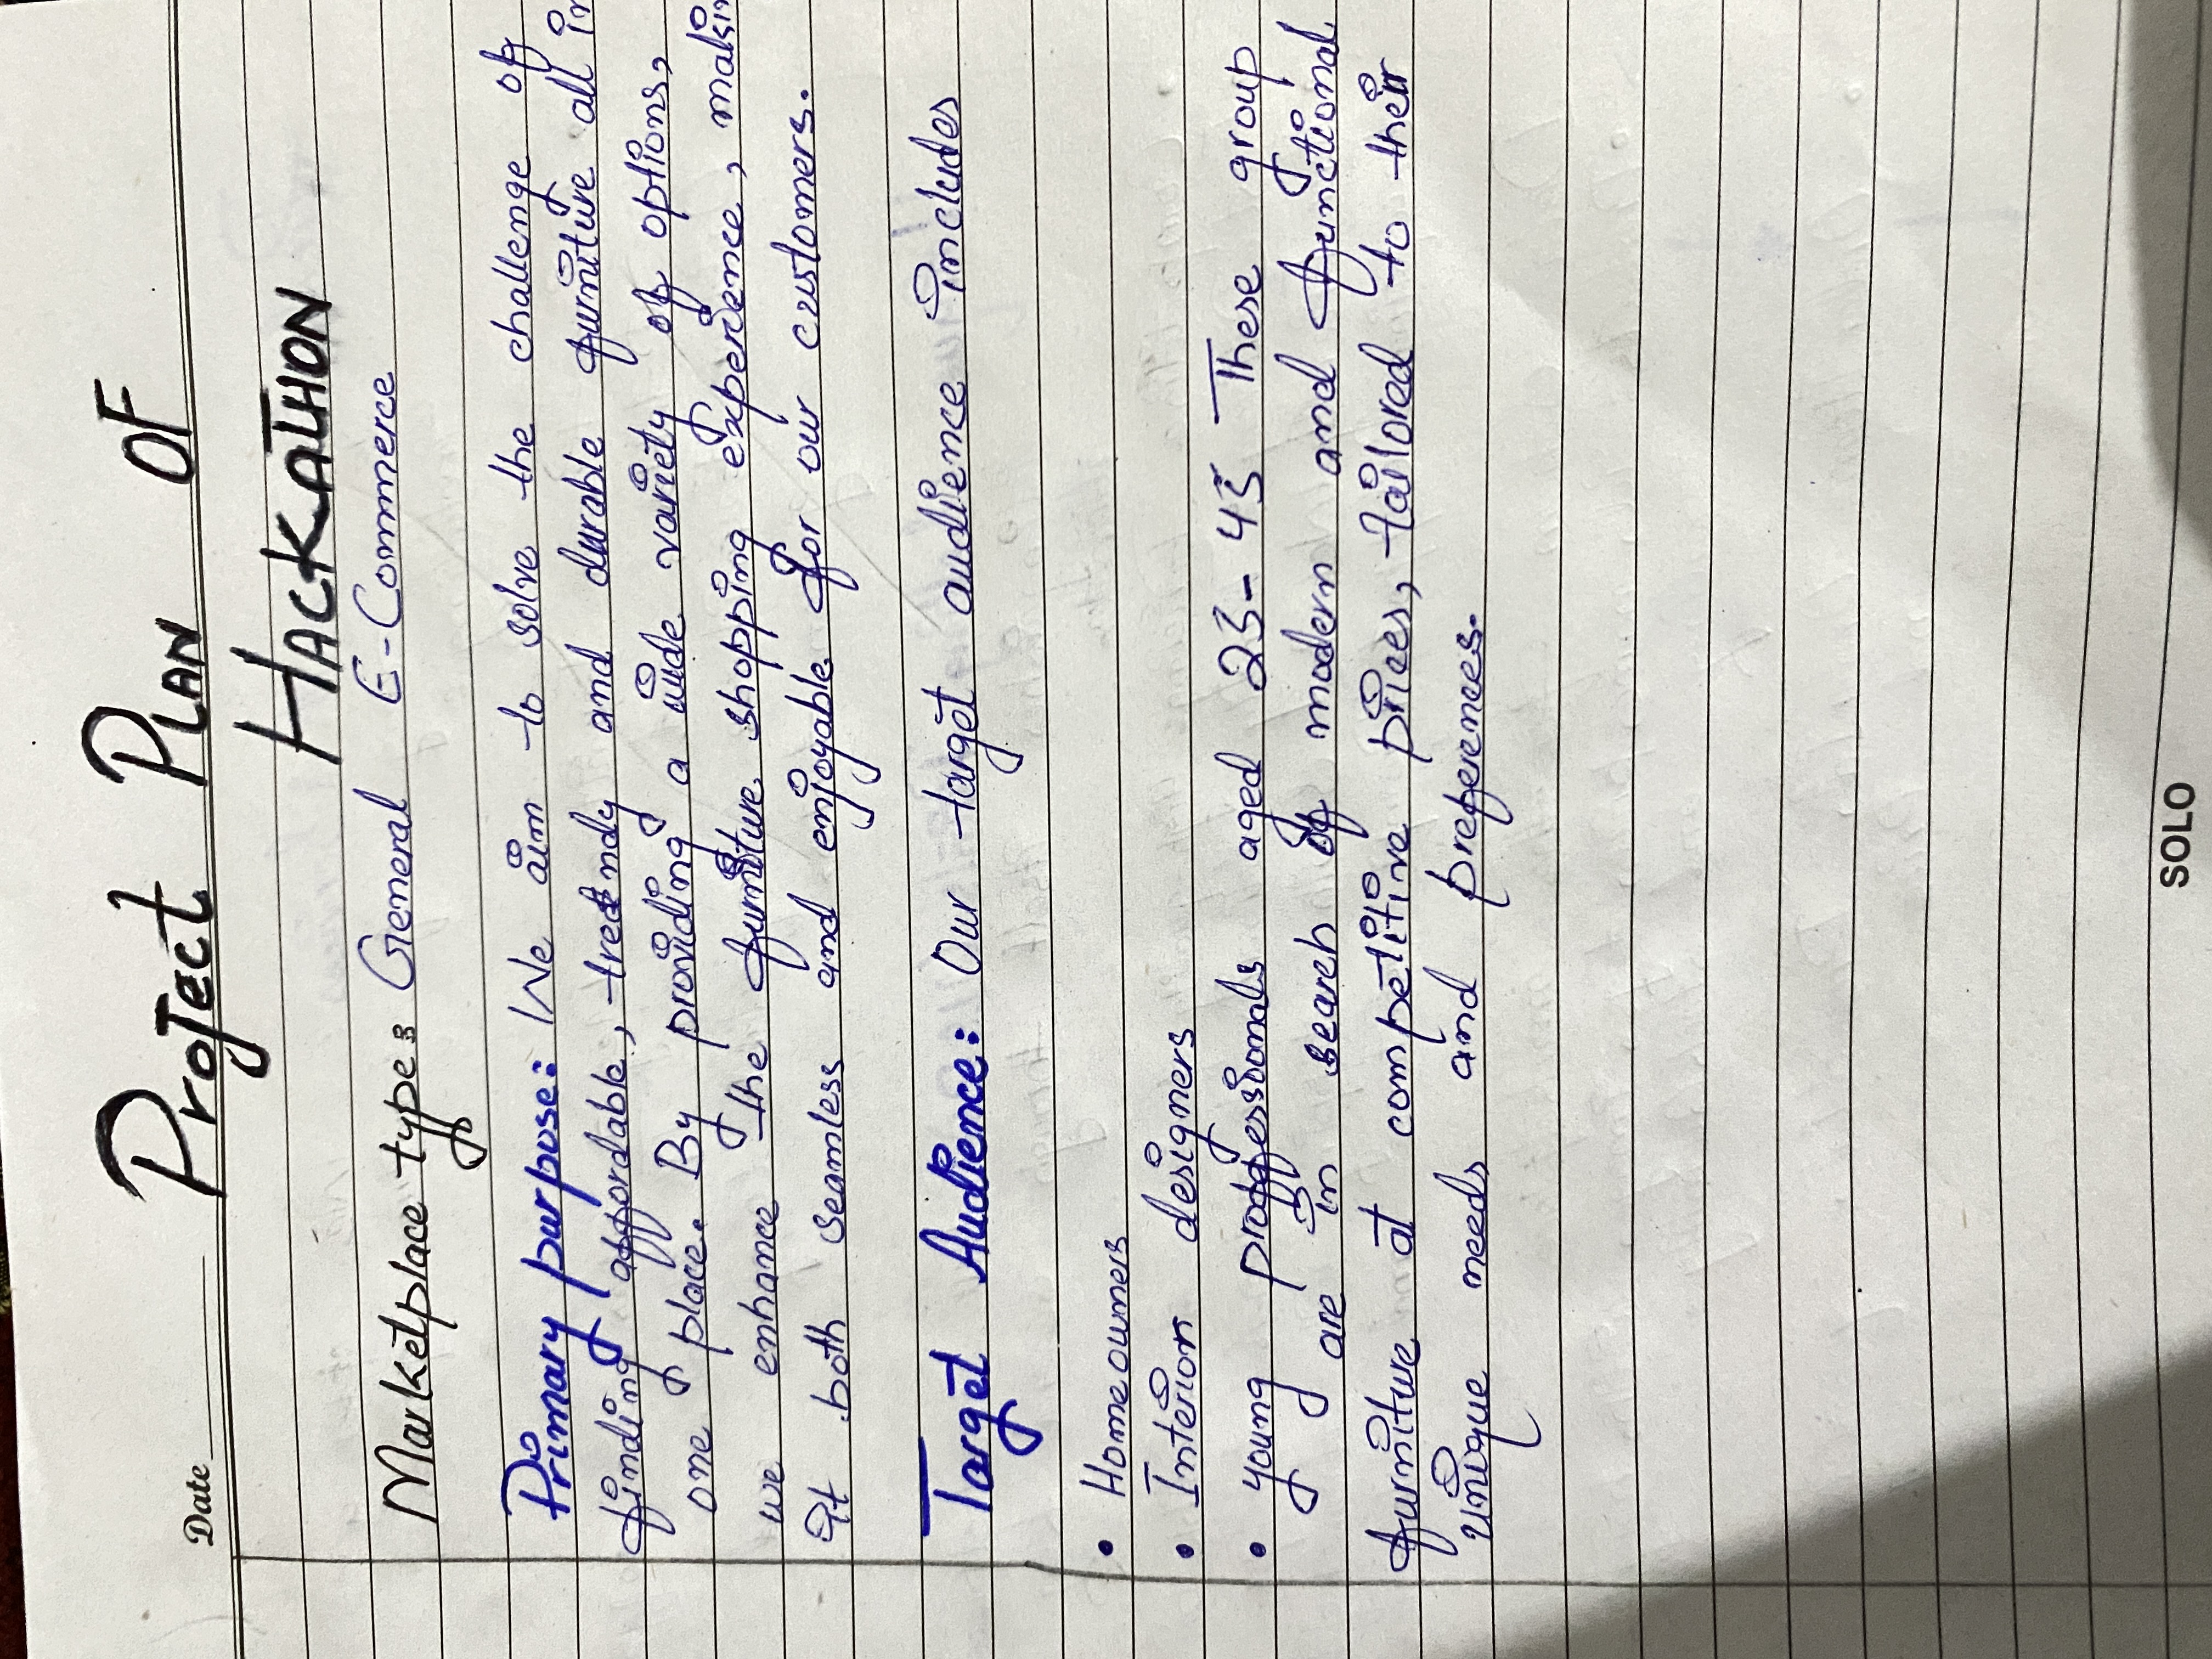 Project Plan OF
Date
HACKATHON
Marketplace type: General E-Commerce
Primary purpose: We aim to solve the challenge of
finding affordable, trendy and durable furniture all in
one place. By providing a wide variety of options,
we enhance the furniture shopping experience, makin
it both seamless and enjoyable for our customers.
Target Audience: Our target audience includes
• Homeowners
• Interior designers
• young proffessionals aged 25-45 These group
are in search of modern and functional
furniture at competitive prices, tailored to their
unique needs and preferences.
SOLO